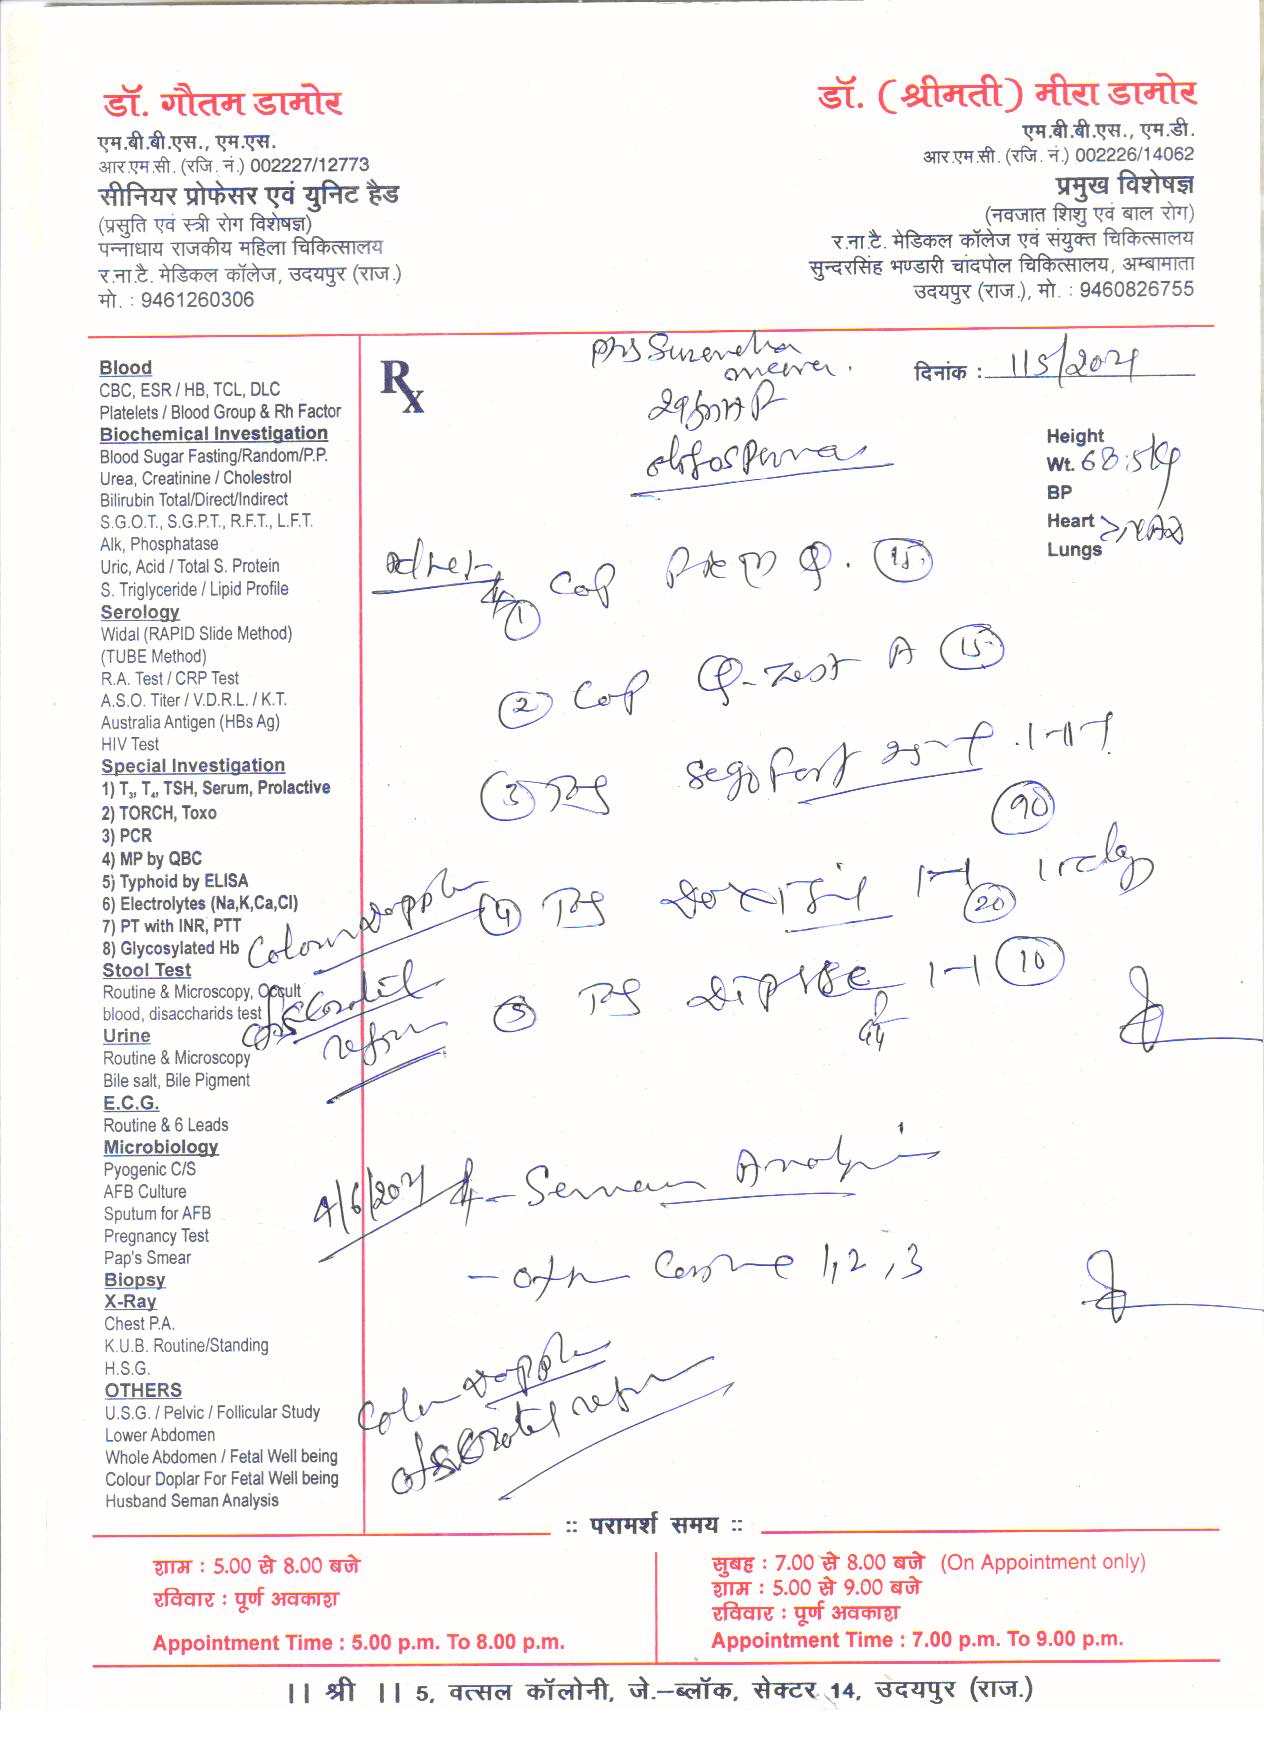 डॉ. गौतम डामोर
एम.बी.बी.एस., एम.एस.
आर.एम.सी. (रजि. नं.) 002227/12773
सीनियर प्रोफेसर एवं युनिट हैड
(प्रसुति एवं स्त्री रोग विशेषज्ञ)
पन्नाधाय राजकीय महिला चिकित्सालय
र.ना.टै. मेडिकल कॉलेज, उदयपुर (राज.)
मो. : 9461260306
डॉ. (श्रीमती) मीरा डामोर
एम.बी.बी.एस., एम.डी.
आर.एम.सी. (रजि. नं.) 002226/14062
प्रमुख विशेषज्ञ
(नवजात शिशु एवं बाल रोग)
र.ना.टै. मेडिकल कॉलेज एवं संयुक्त चिकित्सालय
सुन्दरसिंह भण्डारी चांदपोल चिकित्सालय, अम्बामाता
उदयपुर (राज.), मो. : 9460826755
Blood
CBC, ESR / HB, TCL, DLC
Platelets / Blood Group & Rh Factor
Biochemical Investigation
Blood Sugar Fasting/Random/P.P.
Urea, Creatinine / Cholestrol
Bilirubin Total/Direct/Indirect
S.G.O.T., S.G.P.T., R.F.T., L.F.T.
Alk, Phosphatase
Uric, Acid / Total S. Protein
S. Triglyceride / Lipid Profile
Serology
Widal (RAPID Slide Method)
(TUBE Method)
R.A. Test / CRP Test
A.S.O. Titer / V.D.R.L. / K.T.
Australia Antigen (HBs Ag)
HIV Test
Special Investigation
1) T₃, T₄, TSH, Serum, Prolactive
2) TORCH, Toxo
3) PCR
4) MP by QBC
5) Typhoid by ELISA
6) Electrolytes (Na,K,Ca,Cl)
7) PT with INR, PTT
8) Glycosylated Hb
Stool Test
Routine & Microscopy, Occult
blood, disaccharids test
Urine
Routine & Microscopy
Bile salt, Bile Pigment
E.C.G.
Routine & 6 Leads
Microbiology
Pyogenic C/S
AFB Culture
Sputum for AFB
Pregnancy Test
Pap's Smear
Biopsy
X-Ray
Chest P.A.
K.U.B. Routine/Standing
H.S.G.
OTHERS
U.S.G. / Pelvic / Follicular Study
Lower Abdomen
Whole Abdomen / Fetal Well being
Colour Doplar For Fetal Well being
Husband Seman Analysis
Rx
Surendra
दिनांक :
Height
Wt. 68.5kg
BP
Heart
Lungs
1 Cap 15
2 Cap A 15
3 90
4 20
5 1-1 10
Colour Doppler
4/6/2021 - Semen Analysis
1, 2, 3
Color Doppler
:: परामर्श समय ::
शाम : 5.00 से 8.00 बजे
रविवार : पूर्ण अवकाश
Appointment Time : 5.00 p.m. To 8.00 p.m.
सुबह : 7.00 से 8.00 बजे (On Appointment only)
शाम : 5.00 से 9.00 बजे
रविवार : पूर्ण अवकाश
Appointment Time : 7.00 p.m. To 9.00 p.m.
|| श्री || 5, वत्सल कॉलोनी, जे.-ब्लॉक, सेक्टर 14, उदयपुर (राज.)